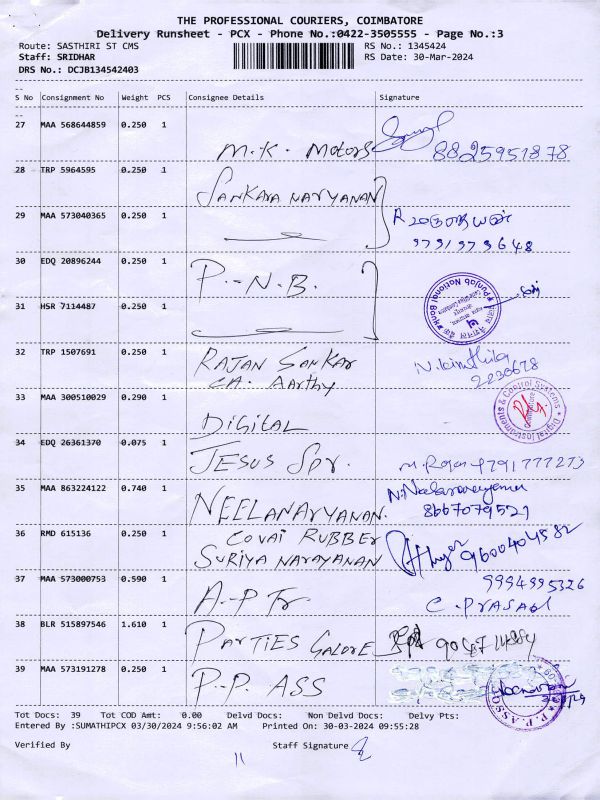 THE PROFESSIONAL COURIERS, COIMBATORE
Delivery Runsheet - PCX - Phone No.:0422-3505555 - Page No.:3
Route: SASTHIRI ST CMS
RS No.: 1345424
Staff: SRIDHAR
RS Date: 30-Mar-2024
DRS No.: DCJB134542403
S No Consignment No Weight PCS Consignee Details Signature
27 MAA 568644859 0.250 1
M.K. Motors 8825951878
28 TRP 5964595 0.250 1
SANKARA NARYANAN
29 MAA 573040365 0.250 1
9791979648
30 EDQ 20896244 0.250 1
P.-N.B.
31 HSR 7114487 0.250 1
Punjab National Bank
32 TRP 1507691 0.250 1
RAJAN SANKAR
CA. Aarthy
2230678
33 MAA 300510029 0.290 1
DIGITAL
Digital Instruments & Control Systems
Coimbatore
34 EDQ 26361370 0.075 1
JESUS Spr.
35 MAA 863224122 0.740 1
NEELANARYANAN.
8667079521
36 RMD 615136 0.250 1
COVAI RUBBER
SURIYA NARAYANAN
9600404582
37 MAA 573000753 0.590 1
9994995326
C. PRASAD
38 BLR 515897546 1.610 1
PARTIES GALORE
39 MAA 573191278 0.250 1
P.P. ASS
P.P. ASSO
Tot Docs: 39 Tot COD Amt: 0.00 Delvd Docs: Non Delvd Docs: Delvy Pts:
Entered By :SUMATHIPCX 03/30/2024 9:56:02 AM Printed On: 30-03-2024 09:55:28
Verified By Staff Signature